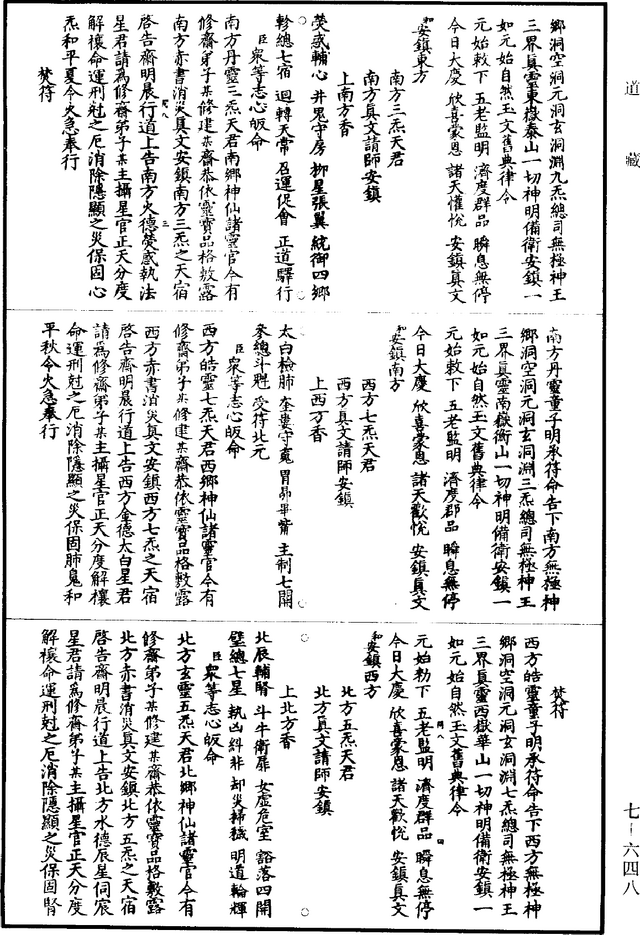 道藏
鄉洞空洞元洞玄洞淵九炁總司無極神王
三界眞靈東嶽泰山一切神明備衛安鎮一
如元始自然玉文舊典律令
元始敕下 五老監明 濟度群品 瞬息無停
今日大慶 欣喜蒙恩 諸天懽悅 安鎮眞文
和安鎮東方
南方三炁天君
南方真文請師安鎮
上南方香
熒惑輔心 井鬼守房 柳星張翼 統御四鄉
軫總七宿 迴轉天常 召運促會 正道驛行
臣衆等志心皈命
南方丹靈三炁天君南鄉神仙諸靈官今有
修齋弟子某修建某齋恭依靈寶品格敷露
南方赤書消災真文安鎮南方三炁之天宿
啓告齋明晨行道上告南方火德熒惑執法
星君請爲修齋弟子某主攝星官正天分度
解禳命運刑尅之厄消除隱顯之災保固心
炁和平夏令火急奉行
焚符
南方丹靈童子明承符命告下南方無極神
鄉洞空洞元洞玄洞淵三炁總司無極神王
三界眞靈南嶽衡山一切神明備衛安鎮一
如元始自然玉文舊典律令
元始敕下 五老監明 濟度群品 瞬息無停
今日大慶 欣喜蒙恩 諸天歡悅 安鎮眞文
和安鎮南方
西方七炁天君
西方真文請師安鎮
上西方香
太白檢肺 奎婁守魂 胃昴畢觜 主制七關
參總斗魁 受符北元
臣衆等志心皈命
西方皓靈七炁天君西鄉神仙諸靈官今有
修齋弟子某修建某齋恭依靈寶品格敷露
西方赤書消災真文安鎮西方七炁之天宿
啓告齋明晨行道上告西方金德太白星君
請爲修齋弟子某主攝星官正天分度解禳
命運刑尅之厄消除隱顯之災保固肺炁和
平秋令火急奉行
焚符
西方皓靈童子明承符命告下西方無極神
鄉洞空洞元洞玄洞淵七炁總司無極神王
三界眞靈西嶽華山一切神明備衛安鎮一
如元始自然玉文舊典律令
元始勑下 五老監明 濟度群品 瞬息無停
今日大慶 欣喜蒙恩 諸天歡悅 安鎮眞文
和安鎮西方
北方五炁天君
北方真文請師安鎮
上北方香
北辰輔腎 斗牛衛扉 女虛危室 豁落四開
壁總七星 執凶糾非 却災掃穢 明道輪輝
臣衆等志心皈命
北方玄靈五炁天君北鄉神仙諸靈官今有
修齋弟子某修建某齋恭依靈寶品格敷露
北方赤書消災真文安鎮北方五炁之天宿
啓告齋明晨行道上告北方水德辰星伺宸
星君請爲修齋弟子某主攝星官正天分度
解禳命運刑尅之厄消除隱顯之災保固腎
七-六四八